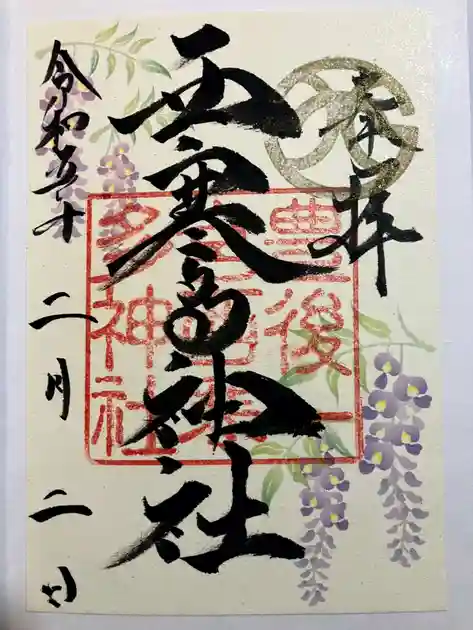 奉拝
西寒多神社
令和五年二月二日
豊後一
宮西寒
多神社